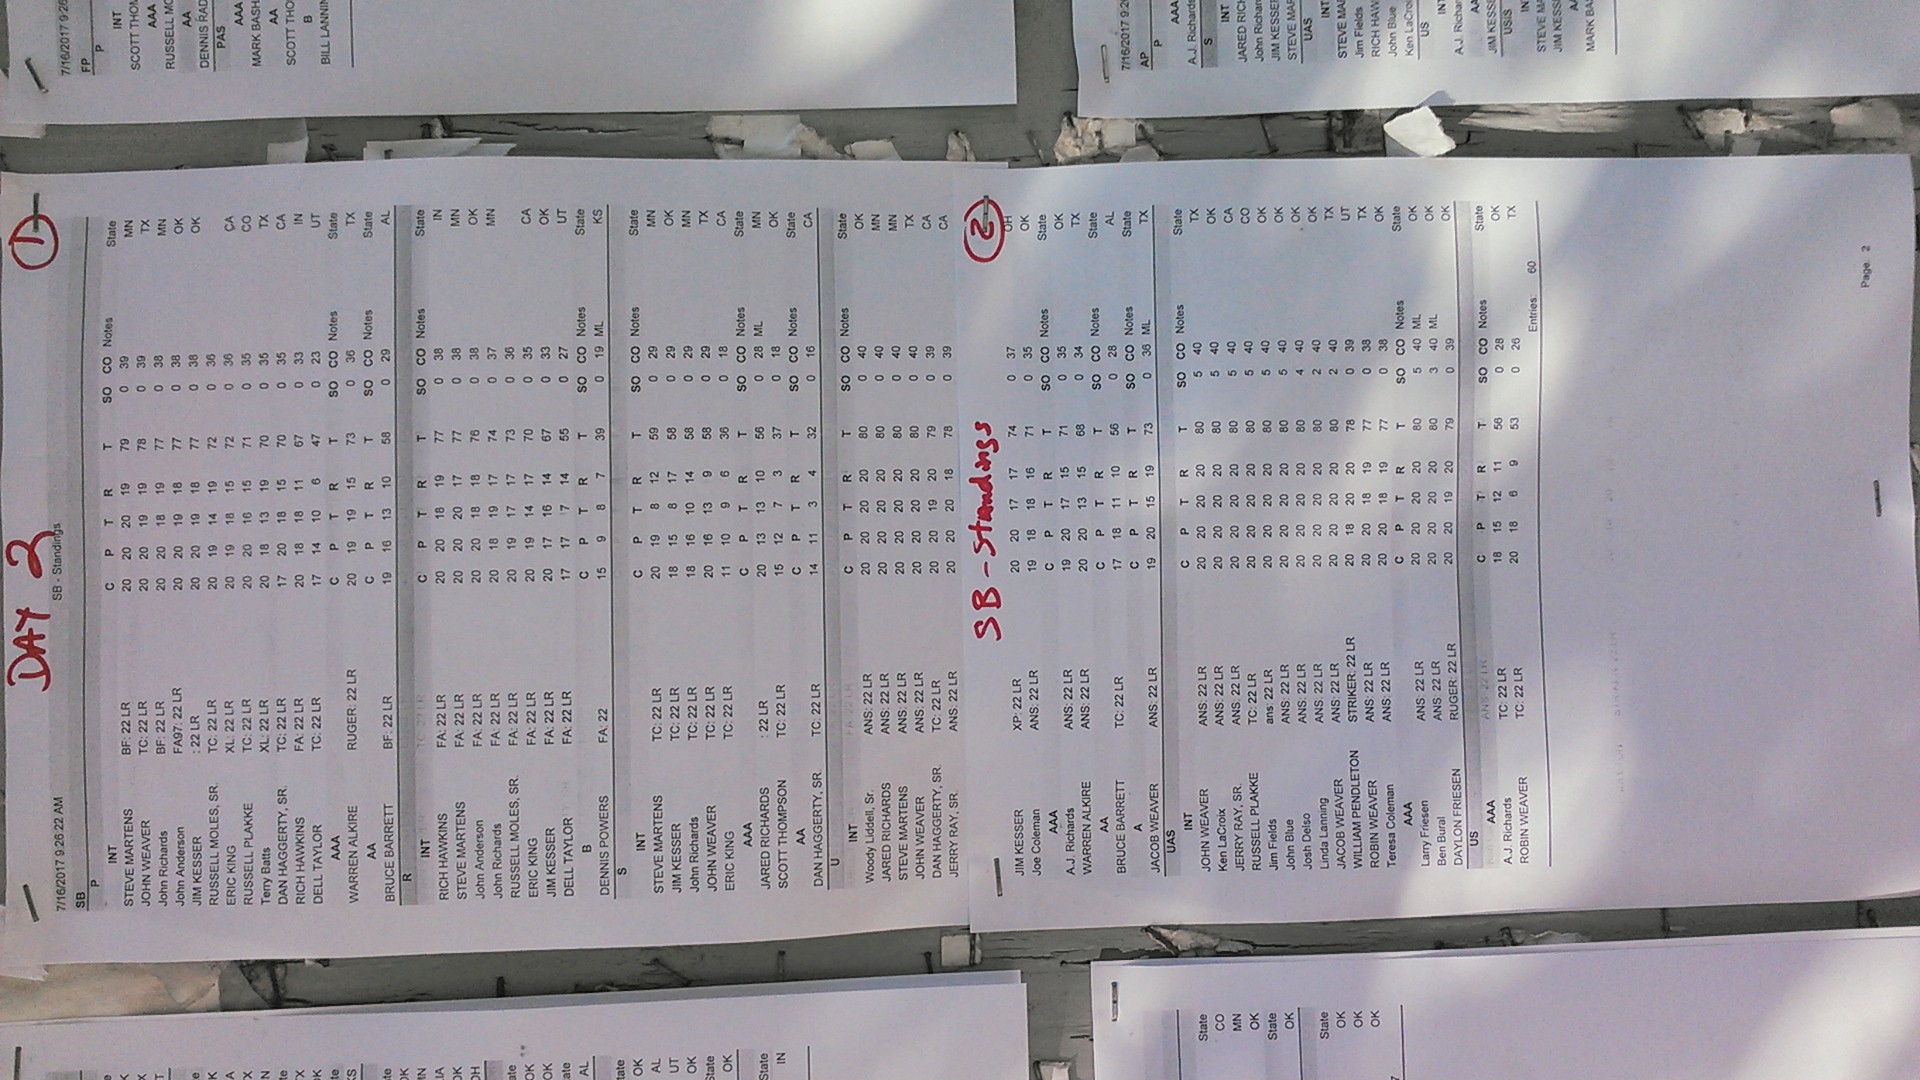 DAY 2
①
7/16/2017 9:26:22 AM SB - Standings
SB
P
INT C P T R T SO CO Notes State
STEVE MARTENS BF: 22 LR 20 20 20 19 79 0 39 MN
JOHN WEAVER TC: 22 LR 20 20 19 19 78 0 39 TX
John Richards BF: 22 LR 20 20 18 19 77 0 38 MN
John Anderson FA97: 22 LR 20 20 19 18 77 0 38 OK
JIM KESSER : 22 LR 20 20 19 18 77 0 38 OK
RUSSELL MOLES, SR. TC: 22 LR 20 19 14 19 72 0 36
ERIC KING XL: 22 LR 20 19 18 15 72 0 36 CA
RUSSELL PLAKKE TC: 22 LR 20 20 16 15 71 0 35 CO
Terry Batts XL: 22 LR 20 18 13 19 70 0 35 TX
DAN HAGGERTY, SR. TC: 22 LR 17 20 18 15 70 0 35 CA
RICH HAWKINS FA: 22 LR 20 18 18 11 67 0 33 IN
DELL TAYLOR TC: 22 LR 17 14 10 6 47 0 23 UT
AAA C P T R T SO CO Notes State
WARREN ALKIRE RUGER: 22 LR 20 19 19 15 73 0 36 TX
AA C P T R T SO CO Notes State
BRUCE BARRETT BF: 22 LR 19 16 13 10 58 0 29 AL
R
INT C P T R T SO CO Notes State
RICH HAWKINS FA: 22 LR 20 20 18 19 77 0 38 IN
STEVE MARTENS FA: 22 LR 20 20 20 17 77 0 38 MN
John Anderson FA: 22 LR 20 20 18 18 76 0 38 OK
John Richards FA: 22 LR 20 18 19 17 74 0 37 MN
RUSSELL MOLES, SR. FA: 22 LR 20 19 17 17 73 0 36
ERIC KING FA: 22 LR 20 19 14 17 70 0 35 CA
JIM KESSER FA: 22 LR 20 17 16 14 67 0 33 OK
DELL TAYLOR FA: 22 LR 17 17 7 14 55 0 27 UT
B C P T R T SO CO Notes State
DENNIS POWERS FA: 22 15 9 8 7 39 0 19 ML KS
S
INT C P T R T SO CO Notes State
STEVE MARTENS TC: 22 LR 20 19 8 12 59 0 29 MN
JIM KESSER TC: 22 LR 18 15 8 17 58 0 29 OK
John Richards TC: 22 LR 18 16 10 14 58 0 29 MN
JOHN WEAVER TC: 22 LR 20 16 13 9 58 0 29 TX
ERIC KING TC: 22 LR 11 10 9 6 36 0 18 CA
AAA C P T R T SO CO Notes State
JARED RICHARDS : 22 LR 20 13 13 10 56 0 28 ML MN
SCOTT THOMPSON TC: 22 LR 15 12 7 3 37 0 18 OK
AA C P T R T SO CO Notes State
DAN HAGGERTY, SR. TC: 22 LR 14 11 3 4 32 0 16 CA
U
INT C P T R T SO CO Notes State
Woody Liddell, Sr. ANS: 22 LR 20 20 20 20 80 0 40 OK
JARED RICHARDS ANS: 22 LR 20 20 20 20 80 0 40 MN
STEVE MARTENS ANS: 22 LR 20 20 20 20 80 0 40 MN
JOHN WEAVER ANS: 22 LR 20 20 20 20 80 0 40 TX
DAN HAGGERTY, SR. TC: 22 LR 20 20 19 20 79 0 39 CA
JERRY RAY, SR. ANS: 22 LR 20 20 20 18 78 0 39 CA
SB - Standings
②
JIM KESSER XP: 22 LR 20 20 17 17 74 0 37 OH
Joe Coleman ANS: 22 LR 19 18 18 16 71 0 35 OK
AAA C P T R T SO CO Notes State
A.J. Richards ANS: 22 LR 19 20 17 15 71 0 35 OK
WARREN ALKIRE ANS: 22 LR 20 20 13 15 68 0 34 TX
AA C P T R T SO CO Notes State
BRUCE BARRETT TC: 22 LR 17 18 11 10 56 0 28 AL
A C P T R T SO CO Notes State
JACOB WEAVER ANS: 22 LR 19 20 15 19 73 0 36 ML TX
UAS
INT C P T R T SO CO Notes State
JOHN WEAVER ANS: 22 LR 20 20 20 20 80 5 40 TX
Ken LaCroix ANS: 22 LR 20 20 20 20 80 5 40 OK
JERRY RAY, SR. ANS: 22 LR 20 20 20 20 80 5 40 CA
RUSSELL PLAKKE TC: 22 LR 20 20 20 20 80 5 40 CO
Jim Fields ans: 22 LR 20 20 20 20 80 5 40 OK
John Blue ANS: 22 LR 20 20 20 20 80 5 40 OK
Josh Delso ANS: 22 LR 20 20 20 20 80 4 40 OK
Linda Lanning ANS: 22 LR 20 20 20 20 80 2 40 OK
JACOB WEAVER ANS: 22 LR 20 20 20 20 80 2 40 TX
WILLIAM PENDLETON STRIKER: 22 LR 20 18 20 20 78 0 39 UT
ROBIN WEAVER ANS: 22 LR 20 20 18 19 77 0 38 TX
Teresa Coleman ANS: 22 LR 20 20 18 19 77 0 38 OK
AAA C P T R T SO CO Notes State
Larry Friesen ANS: 22 LR 20 20 20 20 80 5 40 ML OK
Ben Bural ANS: 22 LR 20 20 20 20 80 3 40 ML OK
DAYLON FRIESEN RUGER: 22 LR 20 20 19 20 79 0 39 OK
US
AAA C P T R T SO CO Notes State
A.J. Richards TC: 22 LR 18 15 12 11 56 0 28 OK
ROBIN WEAVER TC: 22 LR 20 18 6 9 53 0 26 TX
Entries: 60
Page. 2
7/16/2017 9:26
FP
P
INT
SCOTT THOM
AAA
RUSSELL MO
AA
DENNIS RAD
PAS
AAA
MARK BASH
AA
SCOTT THO
B
BILL LANNIN
7/16/2017 9:2
AP
P
AAA
A.J. Richards
S
INT
JARED RICH
John Richar
JIM KESSER
STEVE MAR
UAS
INT
STEVE MAR
Jim Fields
RICH HAW
John Blue
Ken LaCroi
US
IN
A.J. Richar
AA
JIM KESSE
USIS
IN
STEVE M
JIM KESS
MARK BA
State
CO
MN
OK
State
OK
State
OK
OK
OK
State
IN